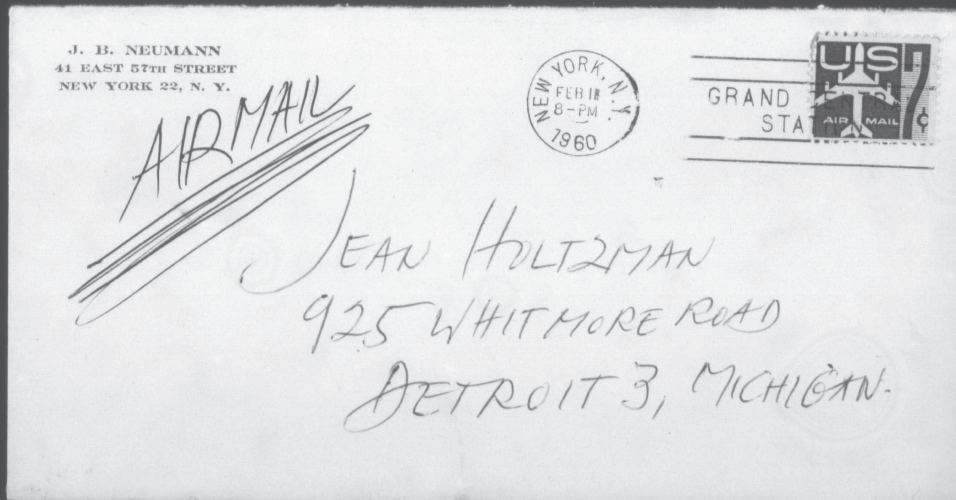 J. B. NEUMANN
41 EAST 57TH STREET
NEW YORK 22, N. Y.
AIR MAIL
NEW YORK, N.Y.
FEB 18
8-PM
1960
GRAND
STATION
US 7¢
AIR MAIL
JEAN HOLTZMAN
925 WHITMORE ROAD
DETROIT 3, MICHIGAN.